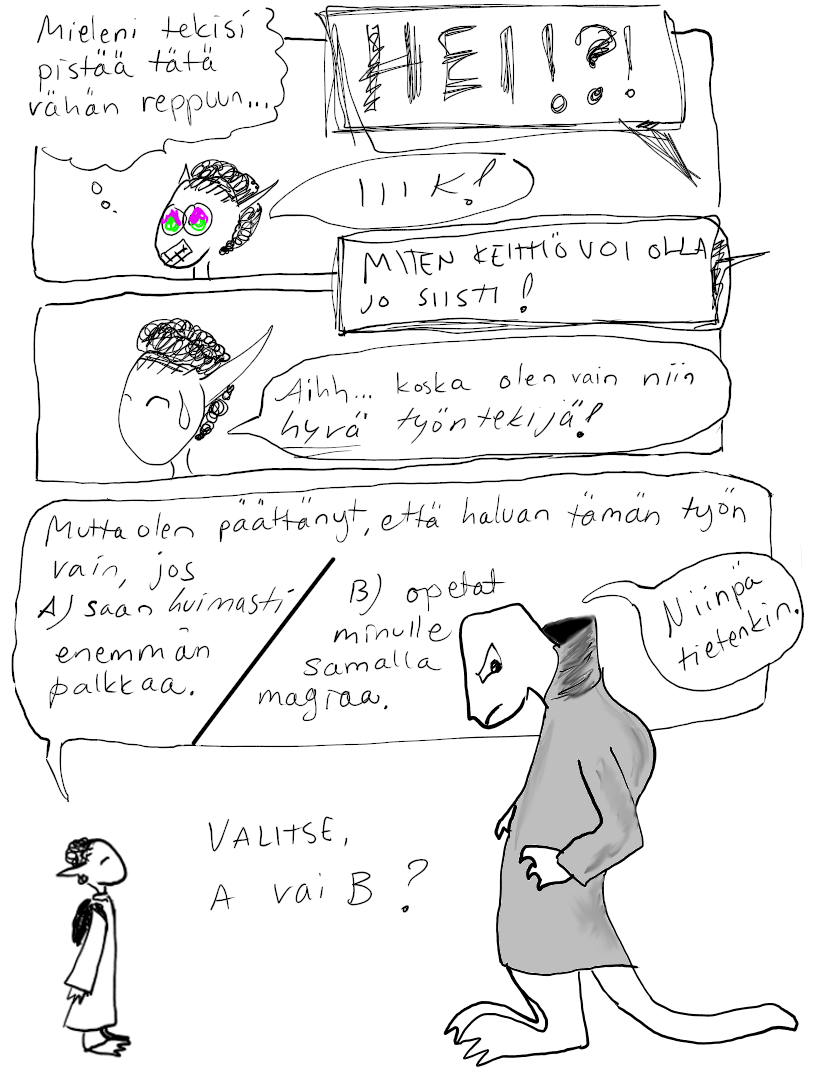 Mieleni tekisi
pistää tätä
vähän reppuun...
HEI!?!
IIIK!
MITEN KEITTIÖ VOI OLLA
JO SIISTI!
Aihh... koska olen vain niin
hyvä työntekijä!
Mutta olen päättänyt, että haluan tämän työn
vain, jos
A) saan huimasti
enemmän
palkkaa.
B) opetat
minulle
samalla
magiaa.
Niinpä
tietenkin.
VALITSE,
A vai B?